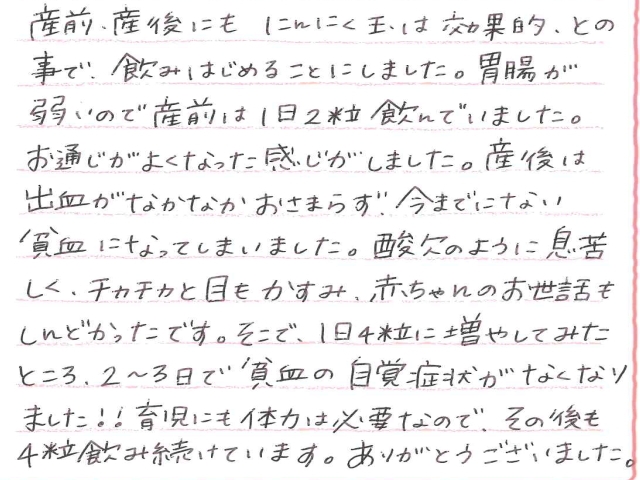 産前、産後にも にんにく玉は効果的、との
事で、飲みはじめることにしました。胃腸が
弱いので産前は1日2粒飲んでいました。
お通じがよくなった感じがしました。産後は
出血がなかなかおさまらず、今までにない
貧血になってしまいました。酸欠のように息苦
しく、チカチカと目もかすみ、赤ちゃんのお世話も
しんどかったです。そこで、1日4粒に増やしてみた
ところ、2〜3日で貧血の自覚症状がなくなり
ました!!育児にも体力は必要なので、その後も
4粒飲み続けています。ありがとうございました。